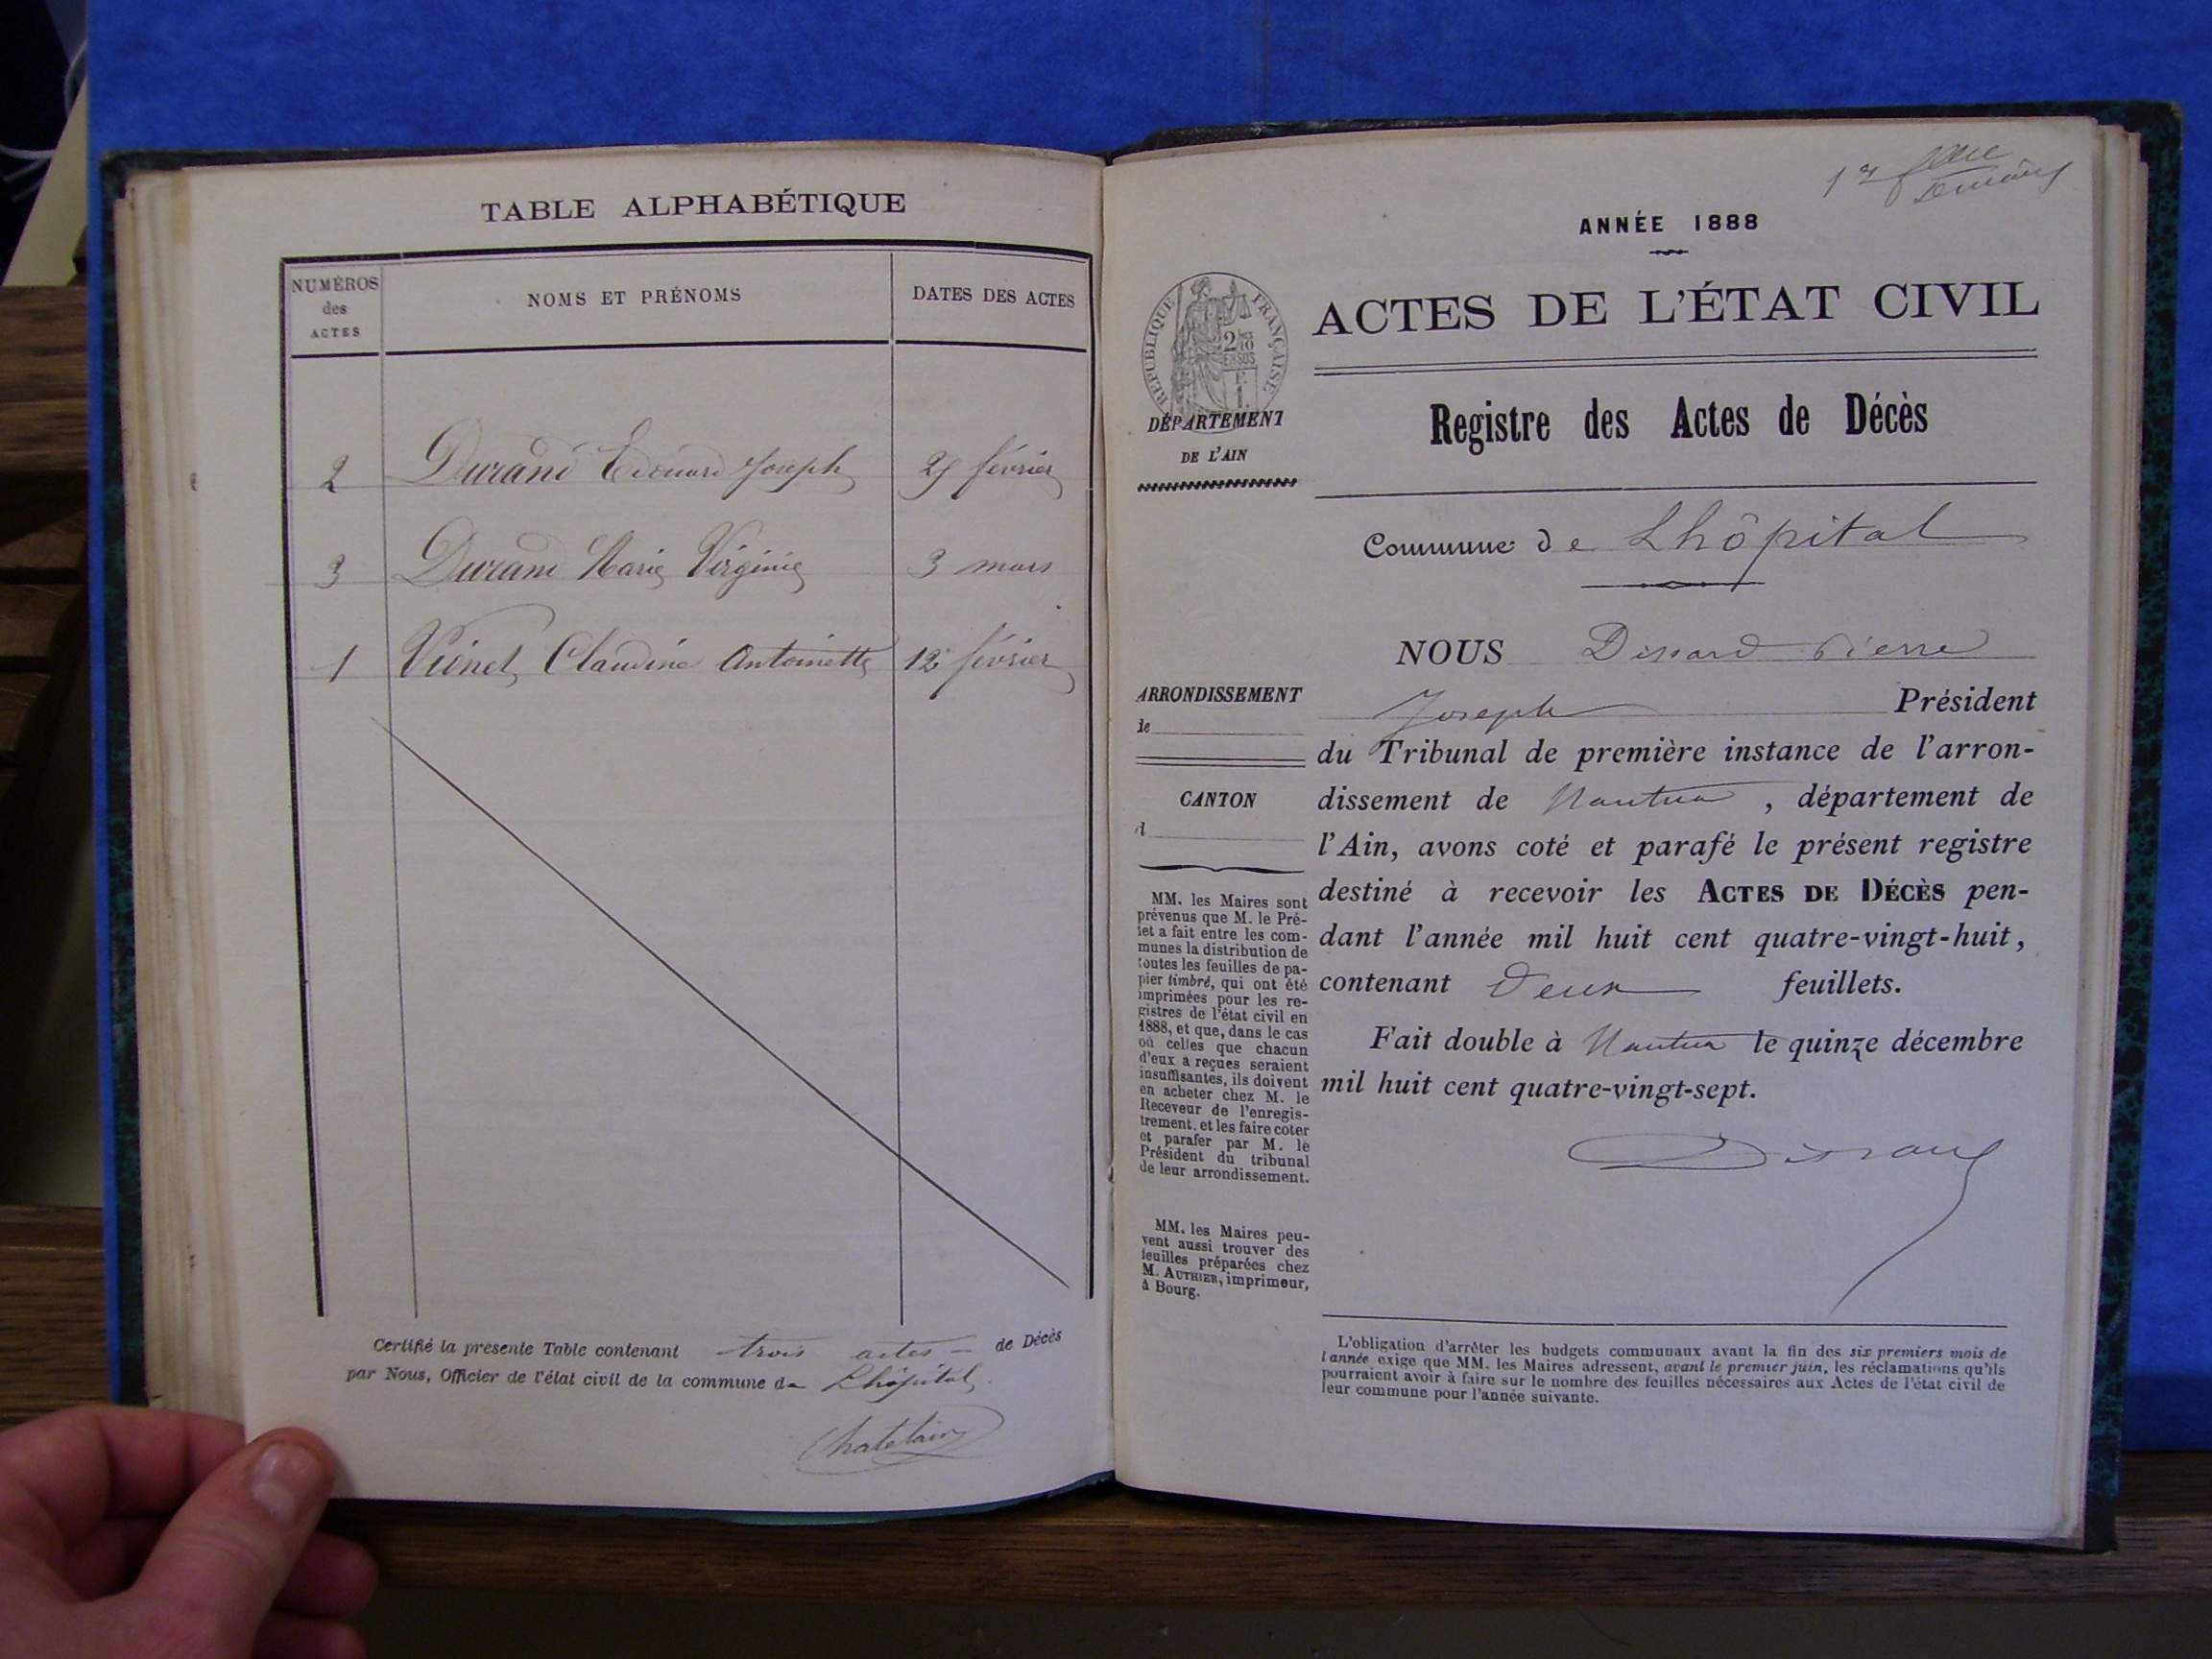 TABLE ALPHABÉTIQUE
NUMÉROS des ACTES
NOMS ET PRÉNOMS
DATES DES ACTES
2 Durand Edouard Joseph février
3 Durand Marie Virginie 3 mars
1 Claudine Antoinette 12 février
Certifié la présente Table contenant trois actes de Décès
par Nous, Officier de l'état civil de la commune de Lhôpital
Chatelain
1er
ANNÉE 1888
RÉPUBLIQUE FRANÇAISE
ACTES DE L'ÉTAT CIVIL
DÉPARTEMENT
DE L'AIN
Registre des Actes de Décès
Commune de Lhôpital
NOUS Pierre
Joseph Président
du Tribunal de première instance de l'arron-
dissement de Nantua, département de
l'Ain, avons coté et parafé le présent registre
destiné à recevoir les ACTES DE DÉCÈS pen-
dant l'année mil huit cent quatre-vingt-huit,
contenant Deux feuillets.
Fait double à Nantua le quinze décembre
mil huit cent quatre-vingt-sept.
ARRONDISSEMENT
de
CANTON
d
MM. les Maires sont
prévenus que M. le Pré-
fet a fait entre les com-
munes la distribution de
toutes les feuilles de pa-
pier timbré, qui ont été
imprimées pour les re-
gistres de l'état civil en
1888, et que, dans le cas
où celles que chacun
d'eux a reçues seraient
insuffisantes, ils doivent
en acheter chez M. le
Receveur de l'enregis-
trement, et les faire coter
et parafer par M. le
Président du tribunal
de leur arrondissement.
MM. les Maires peu-
vent aussi trouver des
feuilles préparées chez
M. AUTHIER, imprimeur,
à Bourg.
L'obligation d'arrêter les budgets communaux avant la fin des six premiers mois de
l'année exige que MM. les Maires adressent, avant le premier juin, les réclamations qu'ils
pourraient avoir à faire sur le nombre des feuilles nécessaires aux Actes de l'état civil de
leur commune pour l'année suivante.